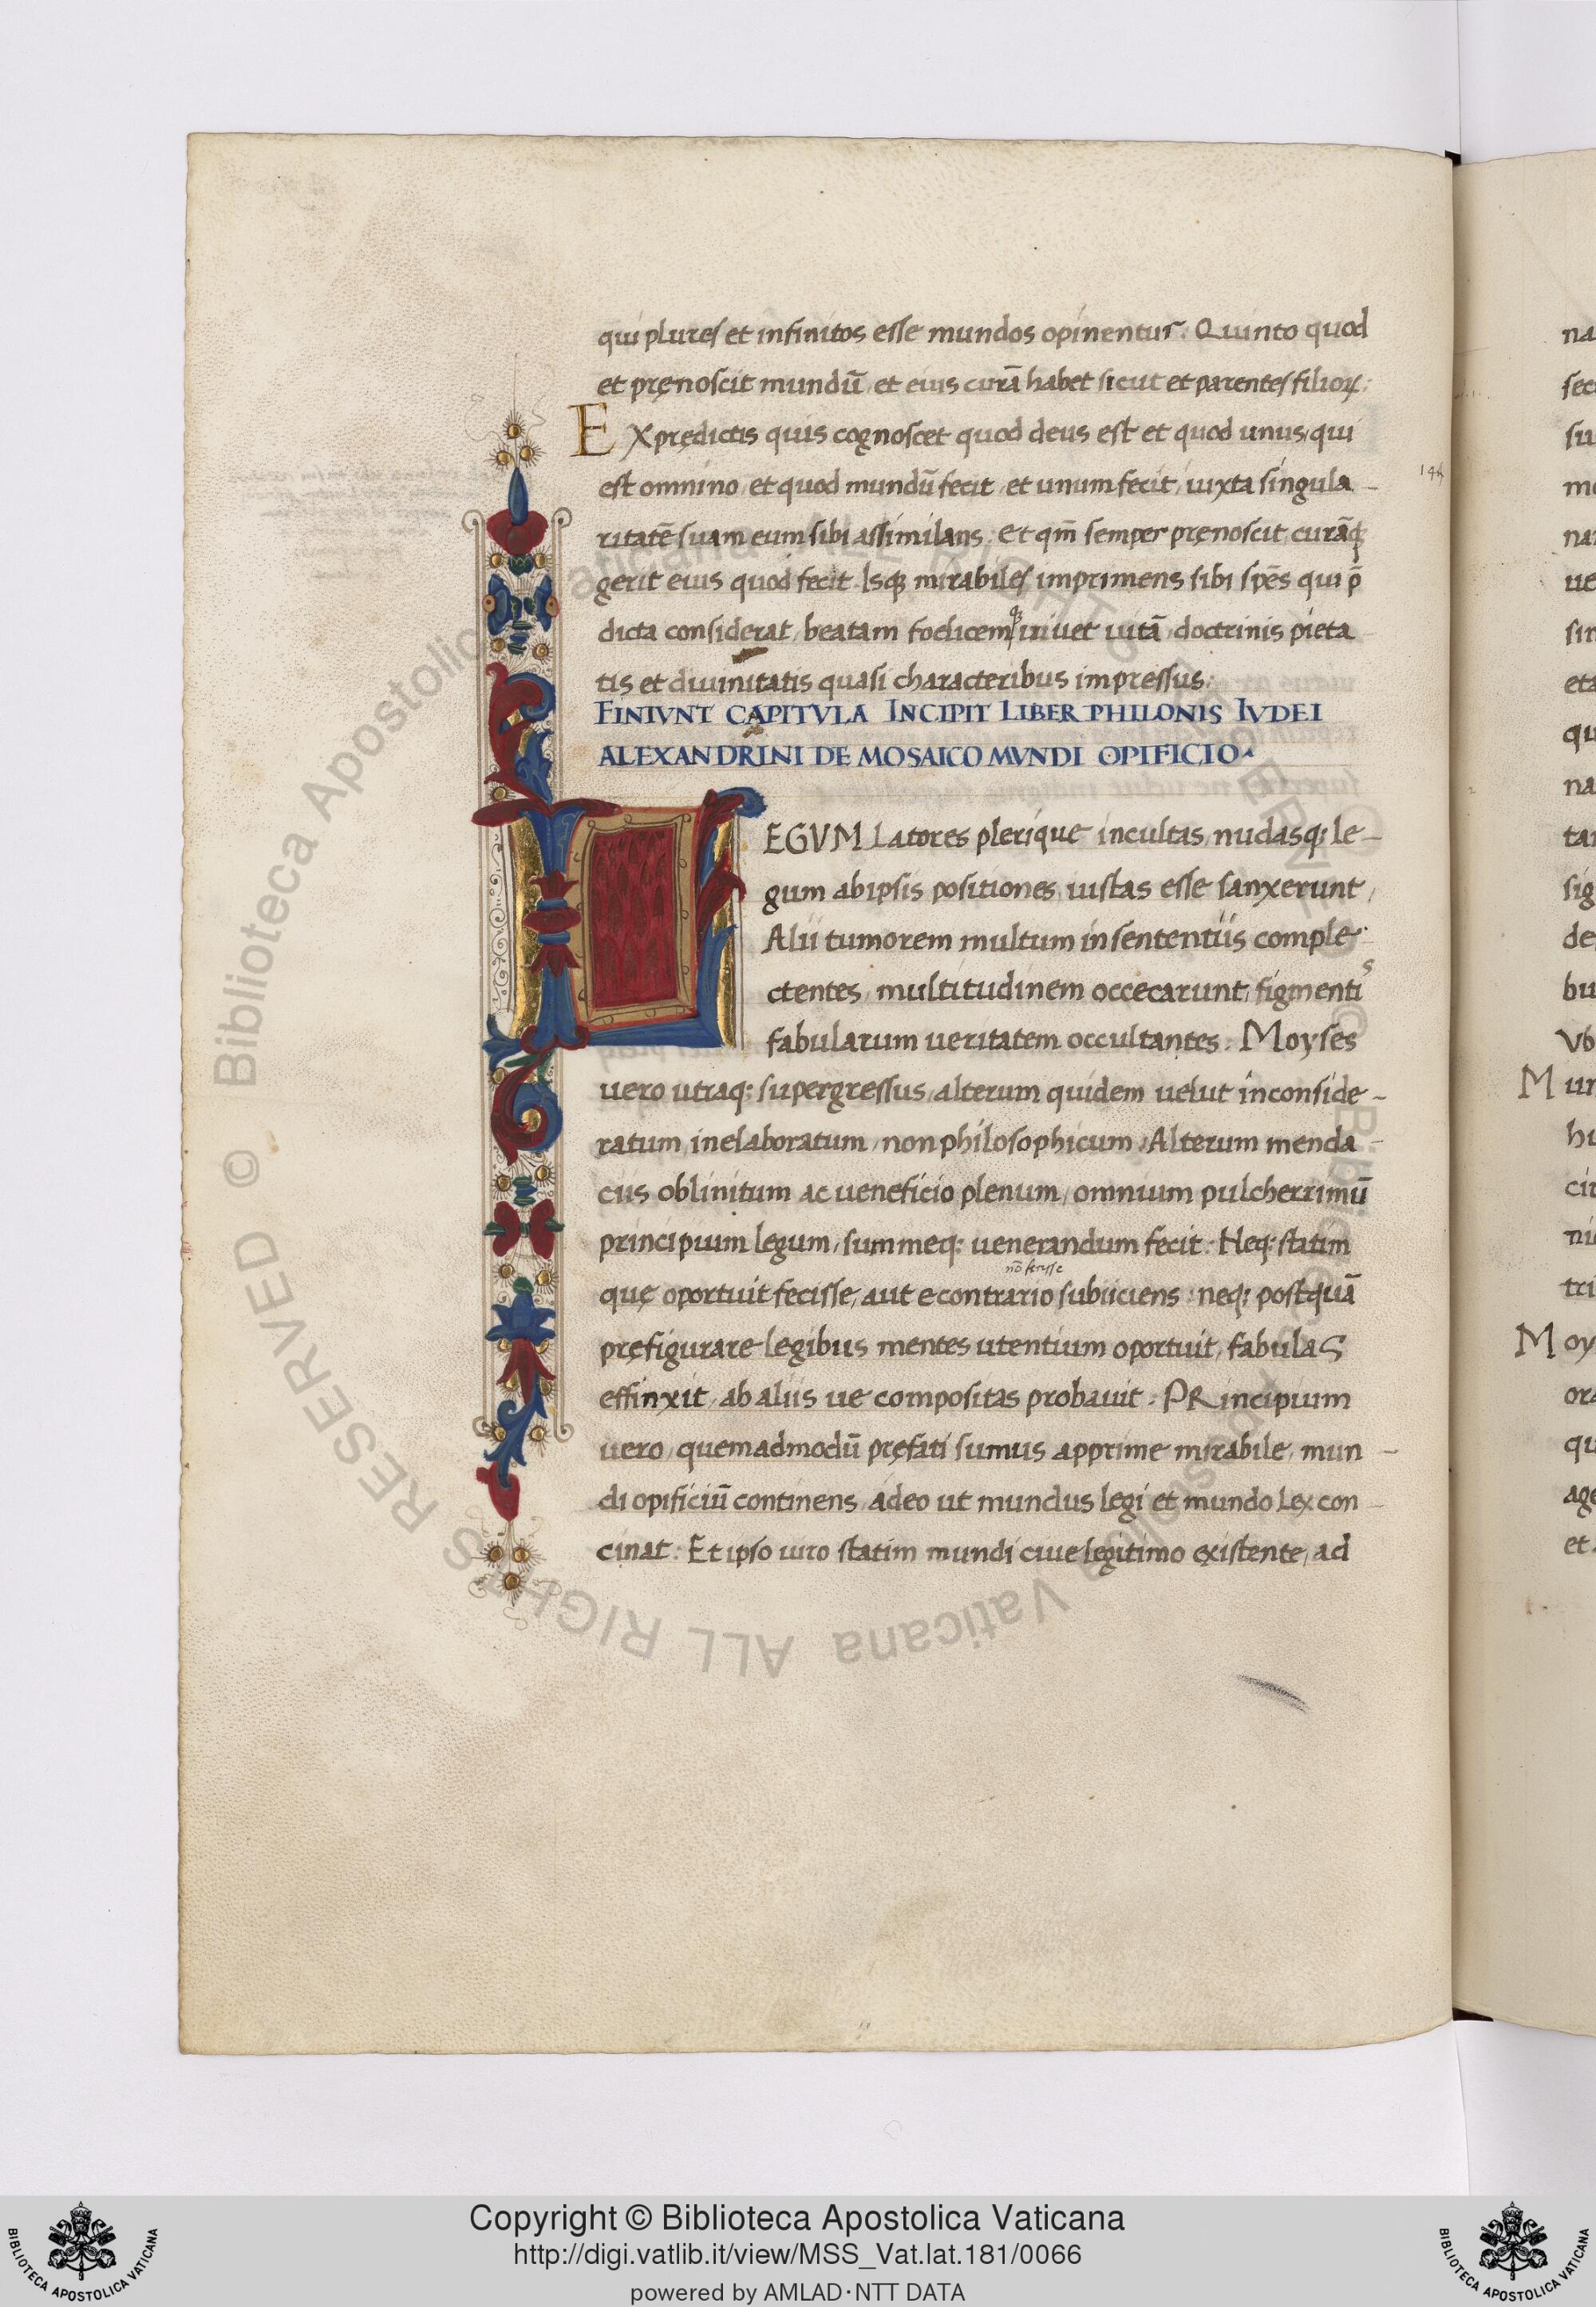 qui plures et infinitos esse mundos opinentur. Quinto quod
et pręnoscit mundū, et eius curā habet sicut et parentes filioꝝ:
EX prędictis quis cognoscet quod deus est et quod unus, qui
est omnino, et quod mundū fecit, et unum fecit, iuxta singula-
ritatē suam eum sibi assimilans. Et qm̄ semper pręnoscit, curāqꝫ
gerit eius quod fecit. Isqꝫ mirabiles imprimens sibi spēs qui p̄
dicta considerat, beatam foelicemqꝫ iniuet uitā, doctrinis pieta
tis et diuinitatis quasi characteribus impressus.
FINIVNT CAPITVLA INCIPIT LIBER PHILONIS IVDEI
ALEXANDRINI DE MOSAICO MVNDI OPIFICIO.
LEGVM Latores plerique incultas, nudasqꝫ le-
gum ab ipsis positiones iustas esse sanxerunt,
Alii tumorem multum in sententiis comple
ctentes, multitudinem occecarunt, figmentis
fabularum ueritatem occultantes. Moyses
uero utraqꝫ supergressus, alterum quidem uelut inconside-
ratum, inelaboratum, non philosophicum, Alterum menda-
ciis oblinitum ac ueneficio plenum, omnium pulcherrimū
principium legum, summeqꝫ uenerandum fecit. Neqꝫ statim
quę oportuit fecisse, aut e contrario subiiciens: neqꝫ postquā
pręfigurare legibus mentes utentium oportuit, fabulaS
effinxit, ab aliis ue compositas probauit. PRincipium
uero, quemadmodū pręfati sumus apprime mirabile, mun-
di opificiū continens, adeo ut mundus legi et mundo Lex con-
cinat. Et ipso uiro statim mundi ciue legitimo existente, ad
144
na
su
na
ue
eta
qu
na
de
bu
Vb
M un
hu
tri
M oy
ora
qu
age
et
© Biblioteca Apostolica Vaticana ALL RIGHTS RESERVED
Copyright © Biblioteca Apostolica Vaticana
http://digi.vatlib.it/view/MSS_Vat.lat.181/0066
powered by AMLAD·NTT DATA
BIBLIOTECA APOSTOLICA VATICANA
BIBLIOTECA APOSTOLICA VATICANA